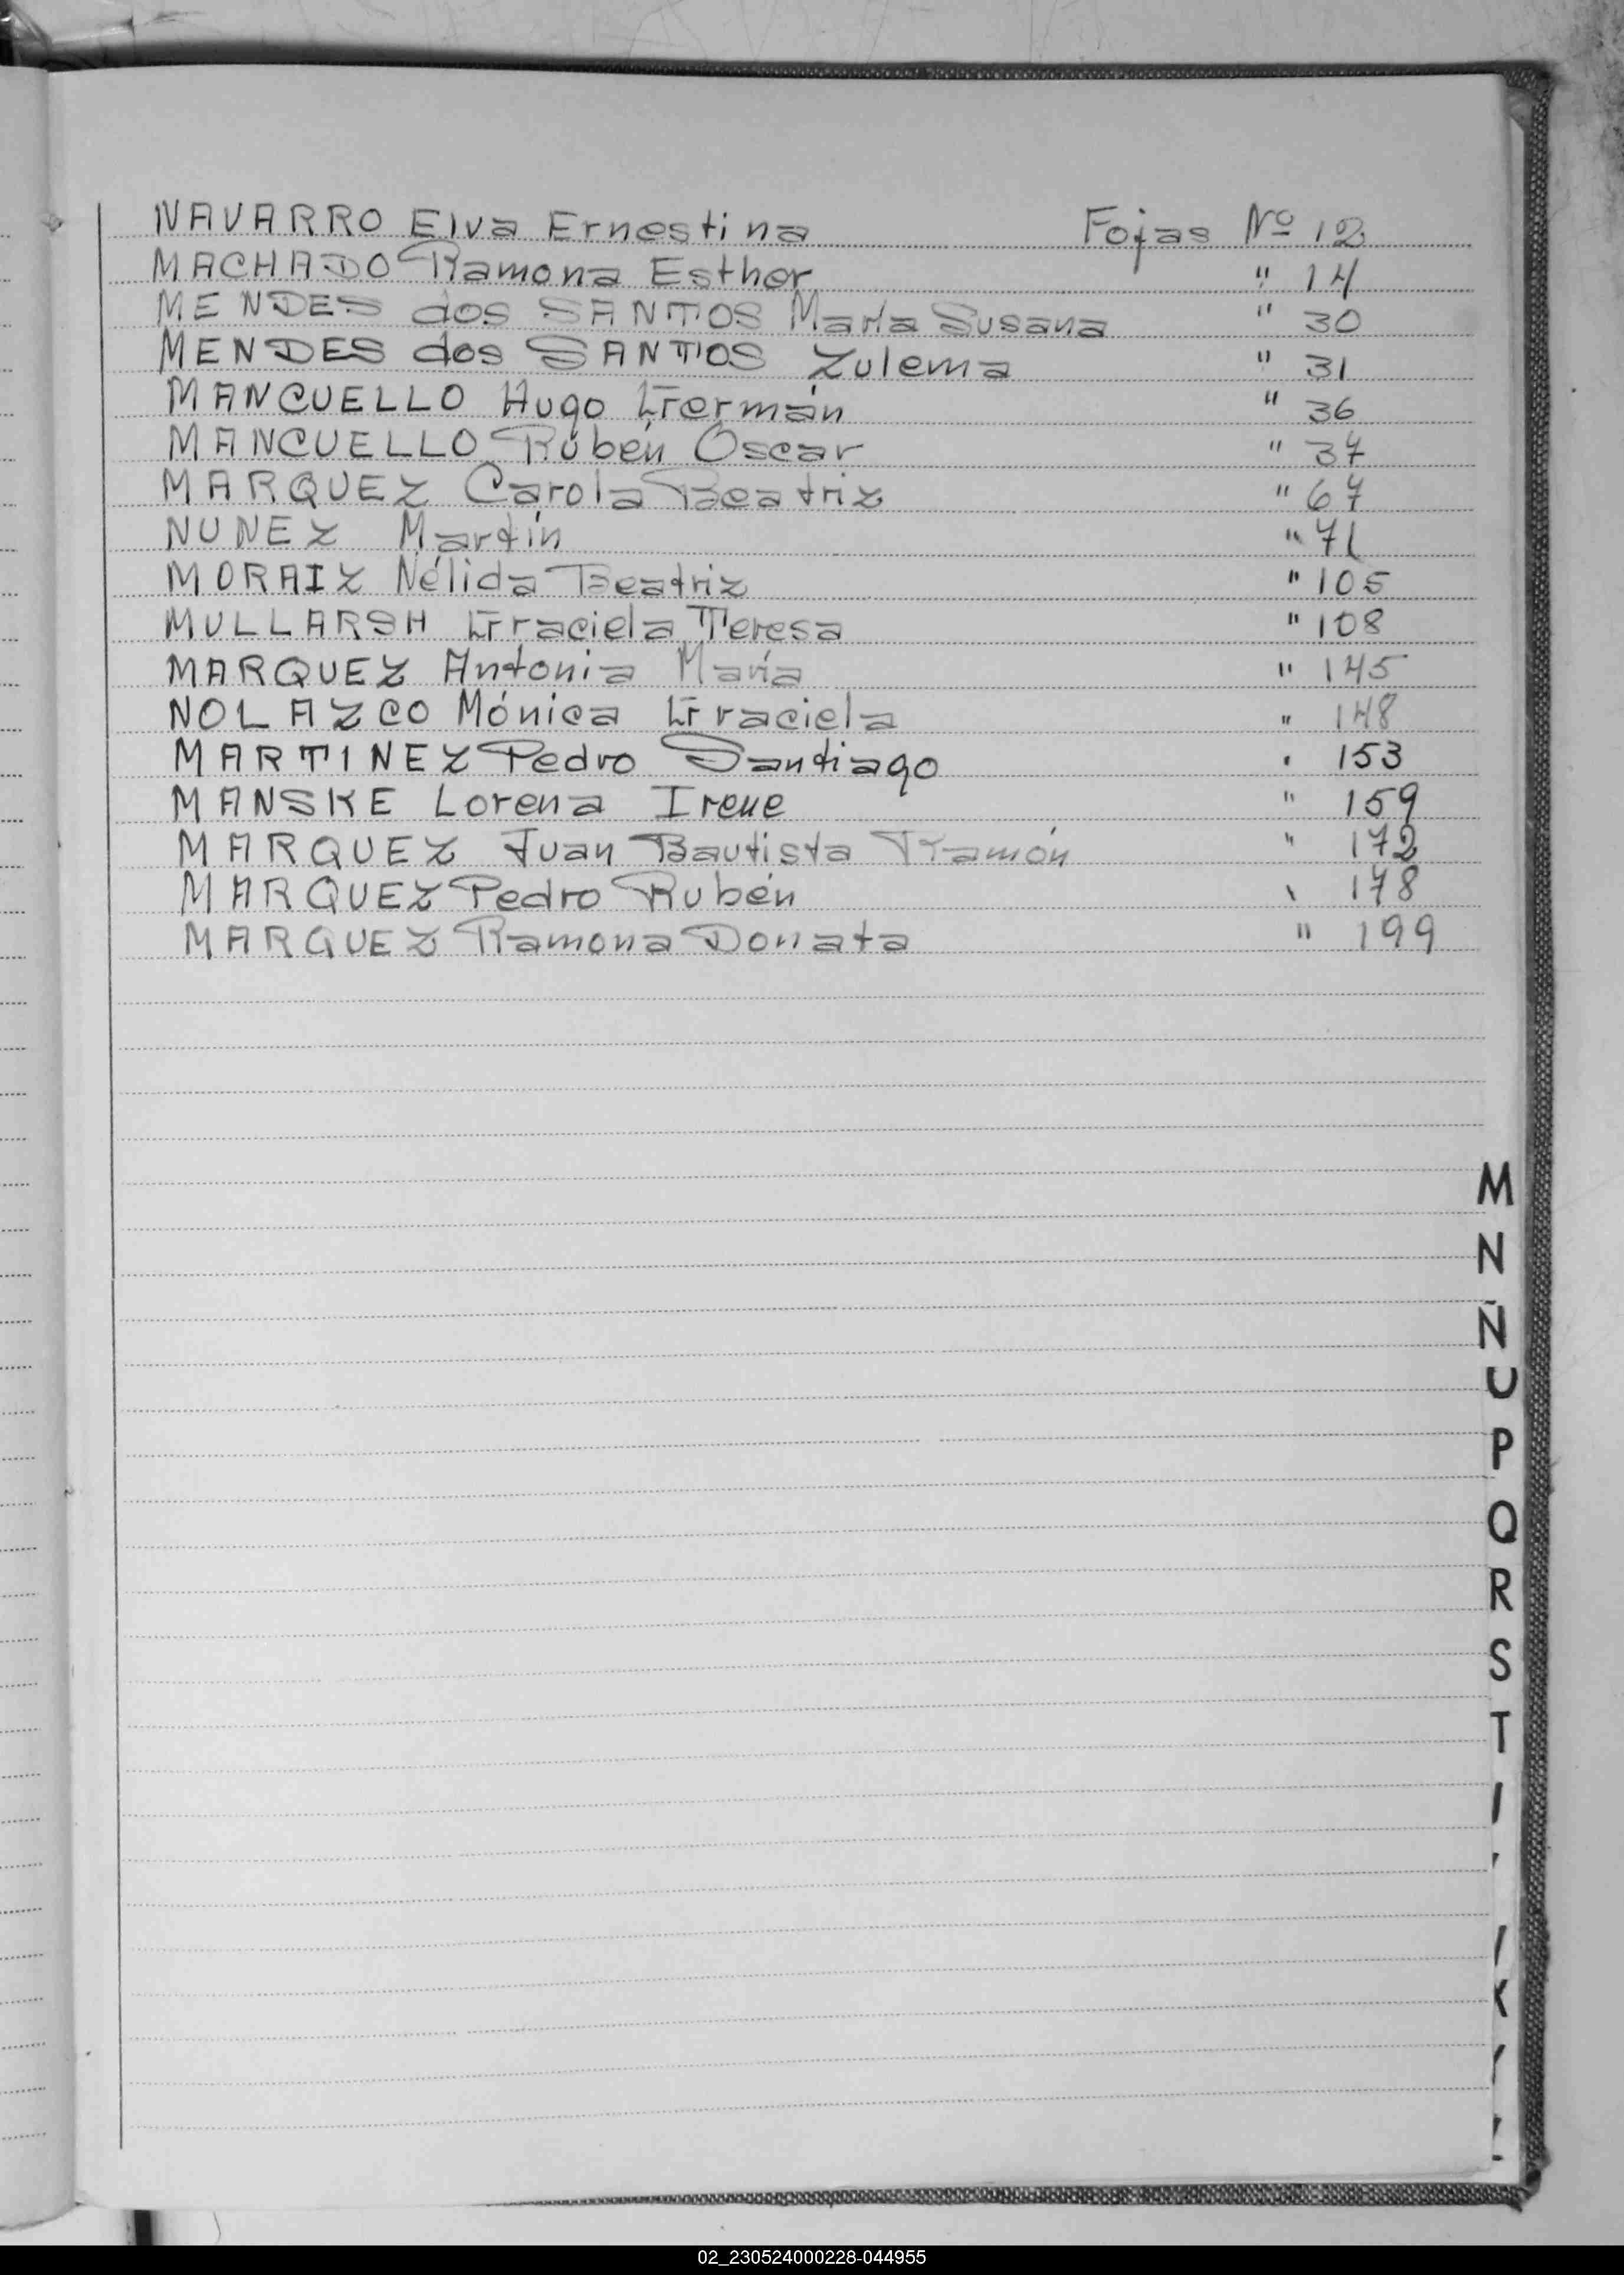 NAVARRO Elva Ernestina Fojas Nº 12
MACHADO Ramona Esther " 14
MENDES dos SANTOS María Susana " 30
MENDES dos SANTOS Zulema " 31
MANCUELLO Hugo Germán " 36
MANCUELLO Rubén Oscar " 37
MARQUEZ Carola Beatriz " 67
NUNEZ Martín " 71
MORAIZ Nélida Beatriz " 105
MULLARSH Graciela Teresa " 108
MARQUEZ Antonia María " 145
NOLAZCO Mónica Graciela " 148
MARTINEZ Pedro Santiago " 153
MANSKE Lorena Irene " 159
MARQUEZ Juan Bautista Ramón " 172
MARQUEZ Pedro Rubén " 178
MARQUEZ Ramona Donata " 199
M
N
Ñ
P
Q
R
S
T
02_230524000228-044955